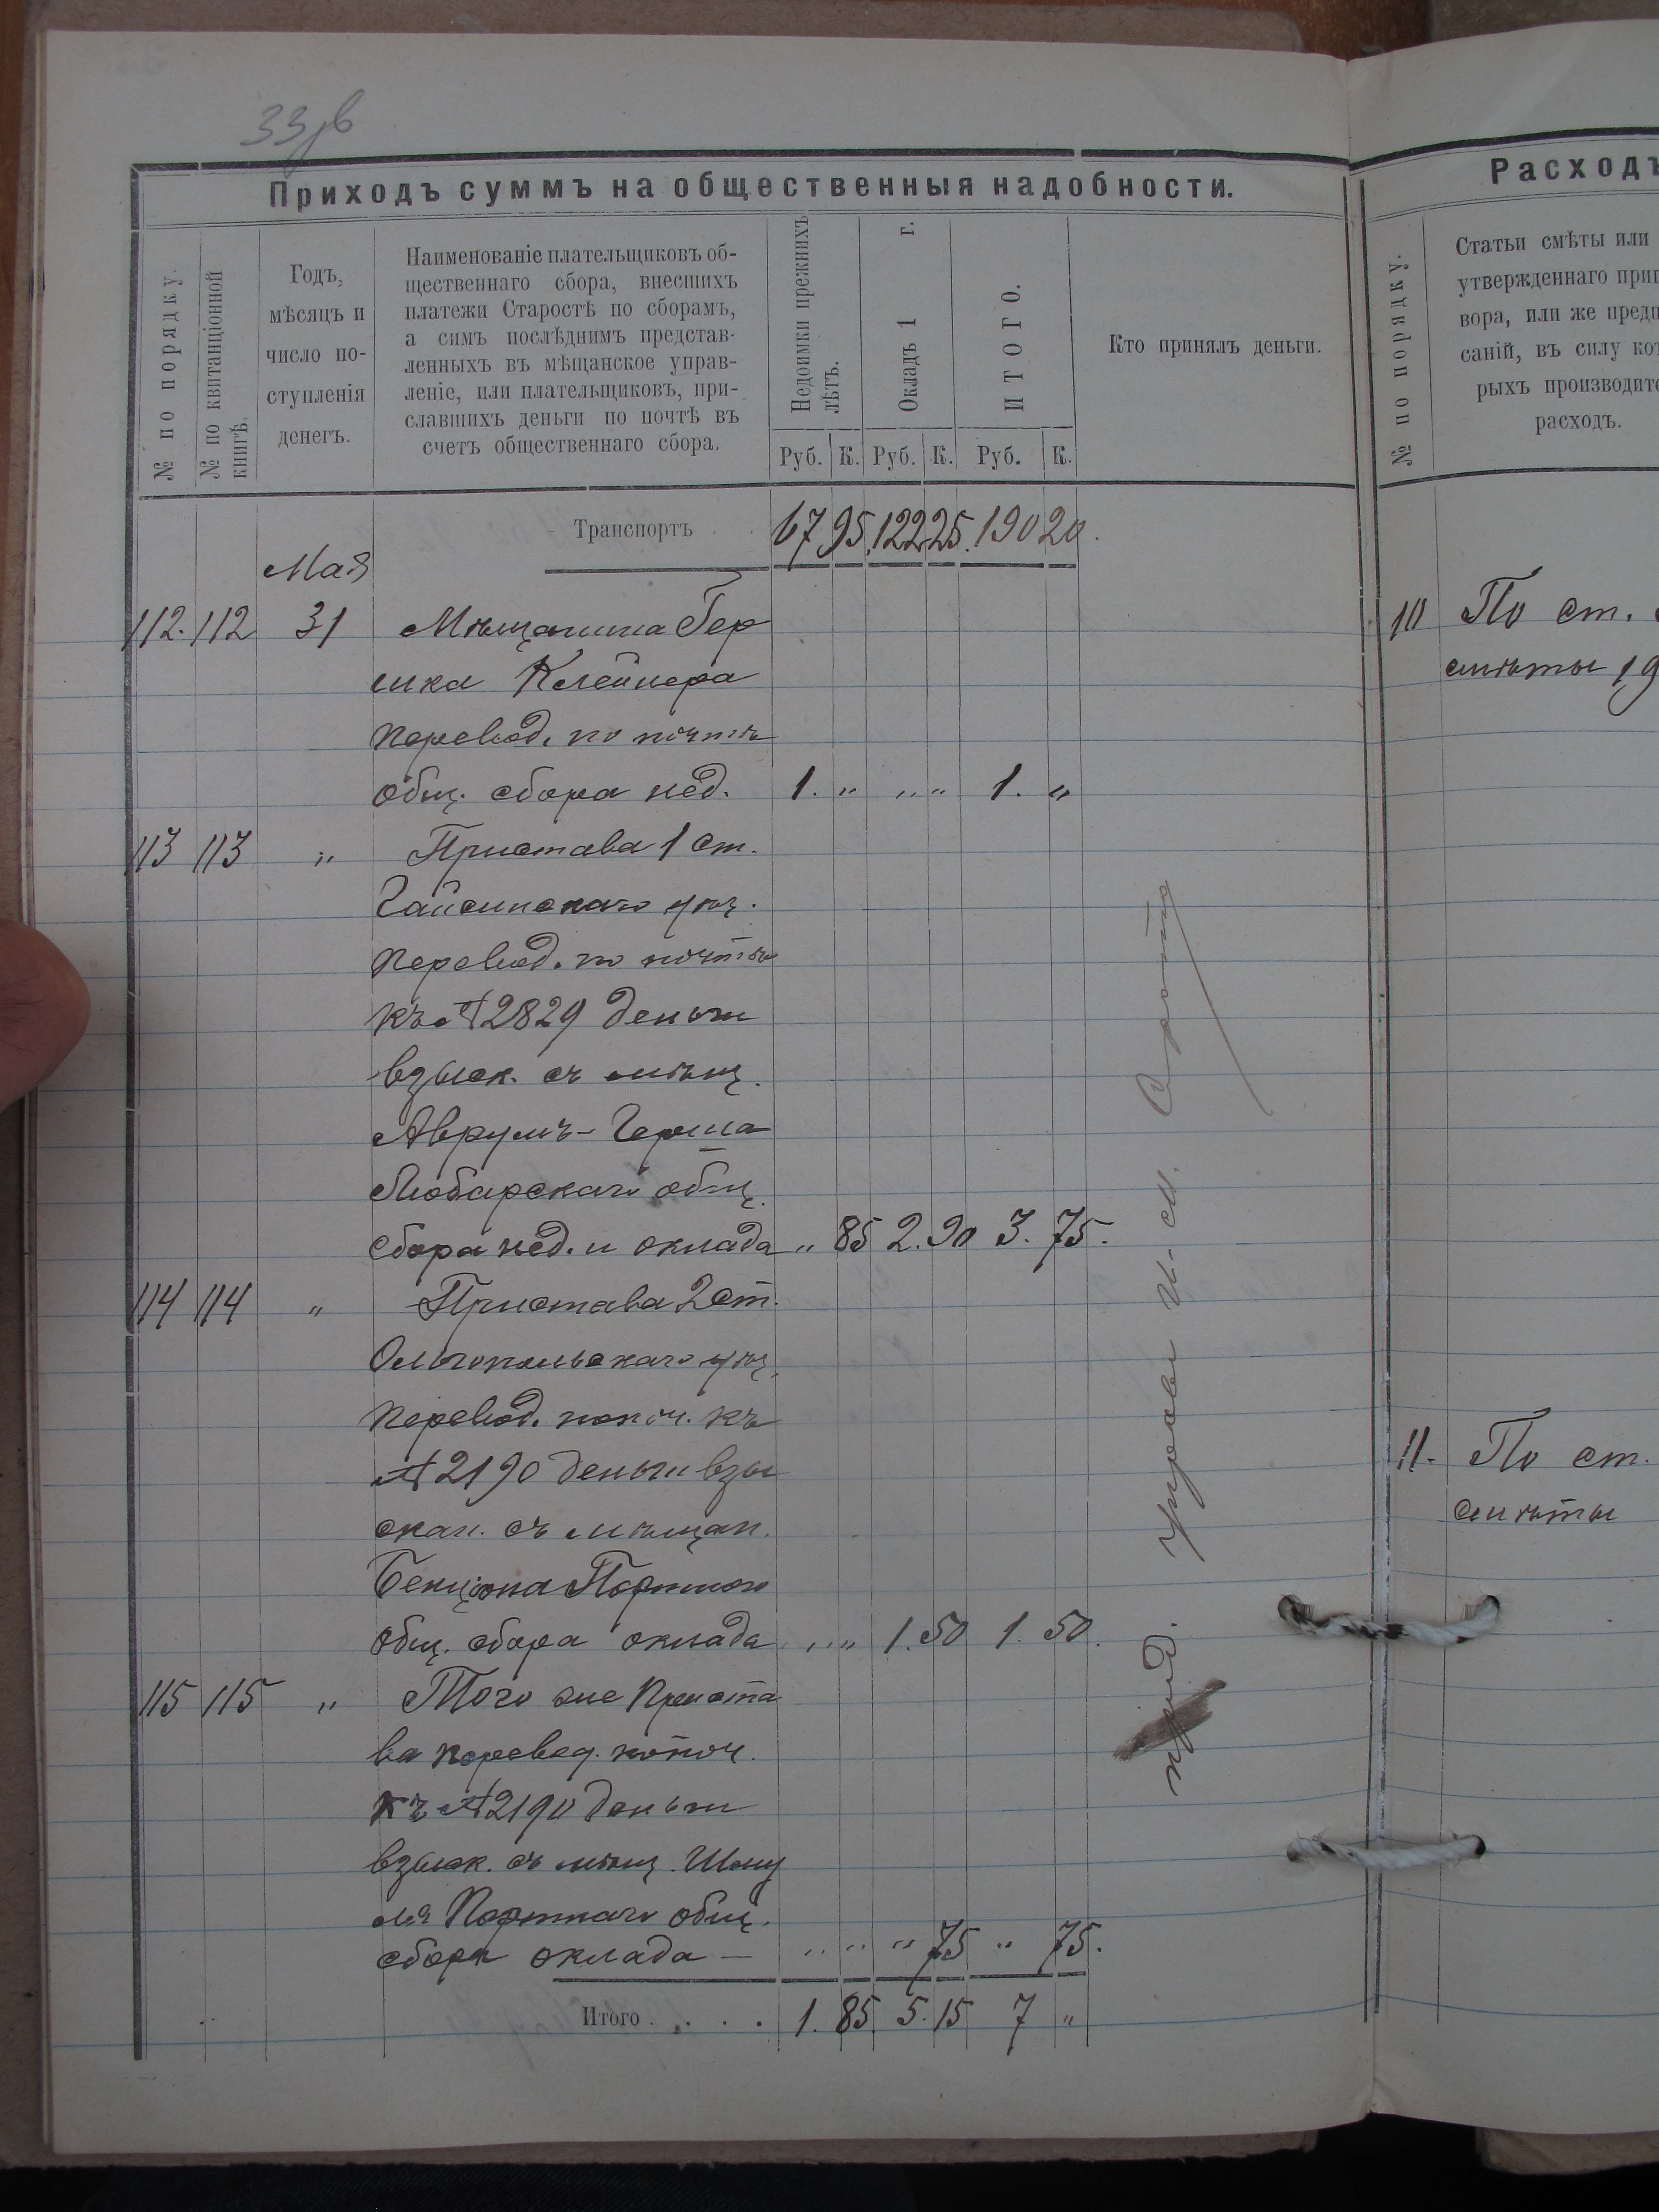 33зв
Приходъ суммъ на общественныя надобности.
№ по порядку.
№ по квитанціонной книгѣ.
Годъ,
мѣсяцъ и
число по-
ступленія
денегъ.
Наименованіе плательщиковъ об-
щественнаго сбора, внесшихъ
платежи Старостѣ по сборамъ,
а симъ послѣднимъ представ-
ленныхъ въ мѣщанское управ-
леніе, или плательщиковъ, при-
славшихъ деньги по почтѣ въ
счетъ общественнаго сбора.
Недоимки прежнихъ
лѣтъ.
Окладъ 1 г.
ИТОГО.
Руб. К. Руб. К. Руб. К.
Кто принялъ деньги.
Транспортъ 67 95. 122 25. 190 20.
Мая
112. 112 31 Мѣщанина Гер
шка Клейнера
перевод. по почтѣ
общ. сбора нед. 1. " " " 1. "
113 113 " Пристава 1 ст.
Гайсинскаго уѣз.
перевод. по почтѣ
къ № 2829 деньги
взыск. съ мѣщ.
Аврумъ-Герша
Любарскаго общ.
сбора нед. и оклада " 85 2. 90 3. 75.
114 114 " Пристава 2 ст.
Ольгопольскаго уѣз.
перевод. по поч. къ
№ 2190 деньги взы
скан. съ мѣщан.
Бенціона Портного
общ. сбора оклада " " 1. 50 1. 50.
115 115 " Того же Приста
ва перевод. по поч.
къ № 2190 деньги
взыск. съ мѣщ. Шму
ля Портнаго общ.
сбора оклада — " " " 75 " 75.
Итого . . . . 1. 85. 5. 15 7 "
Расходъ
№ по порядку.
Статьи смѣты или
утвержденнаго при
вора, или же пред
саній, въ силу ко
рыхъ производит
расходъ.
10 По ст.
смѣты 19
11. По ст.
смѣты